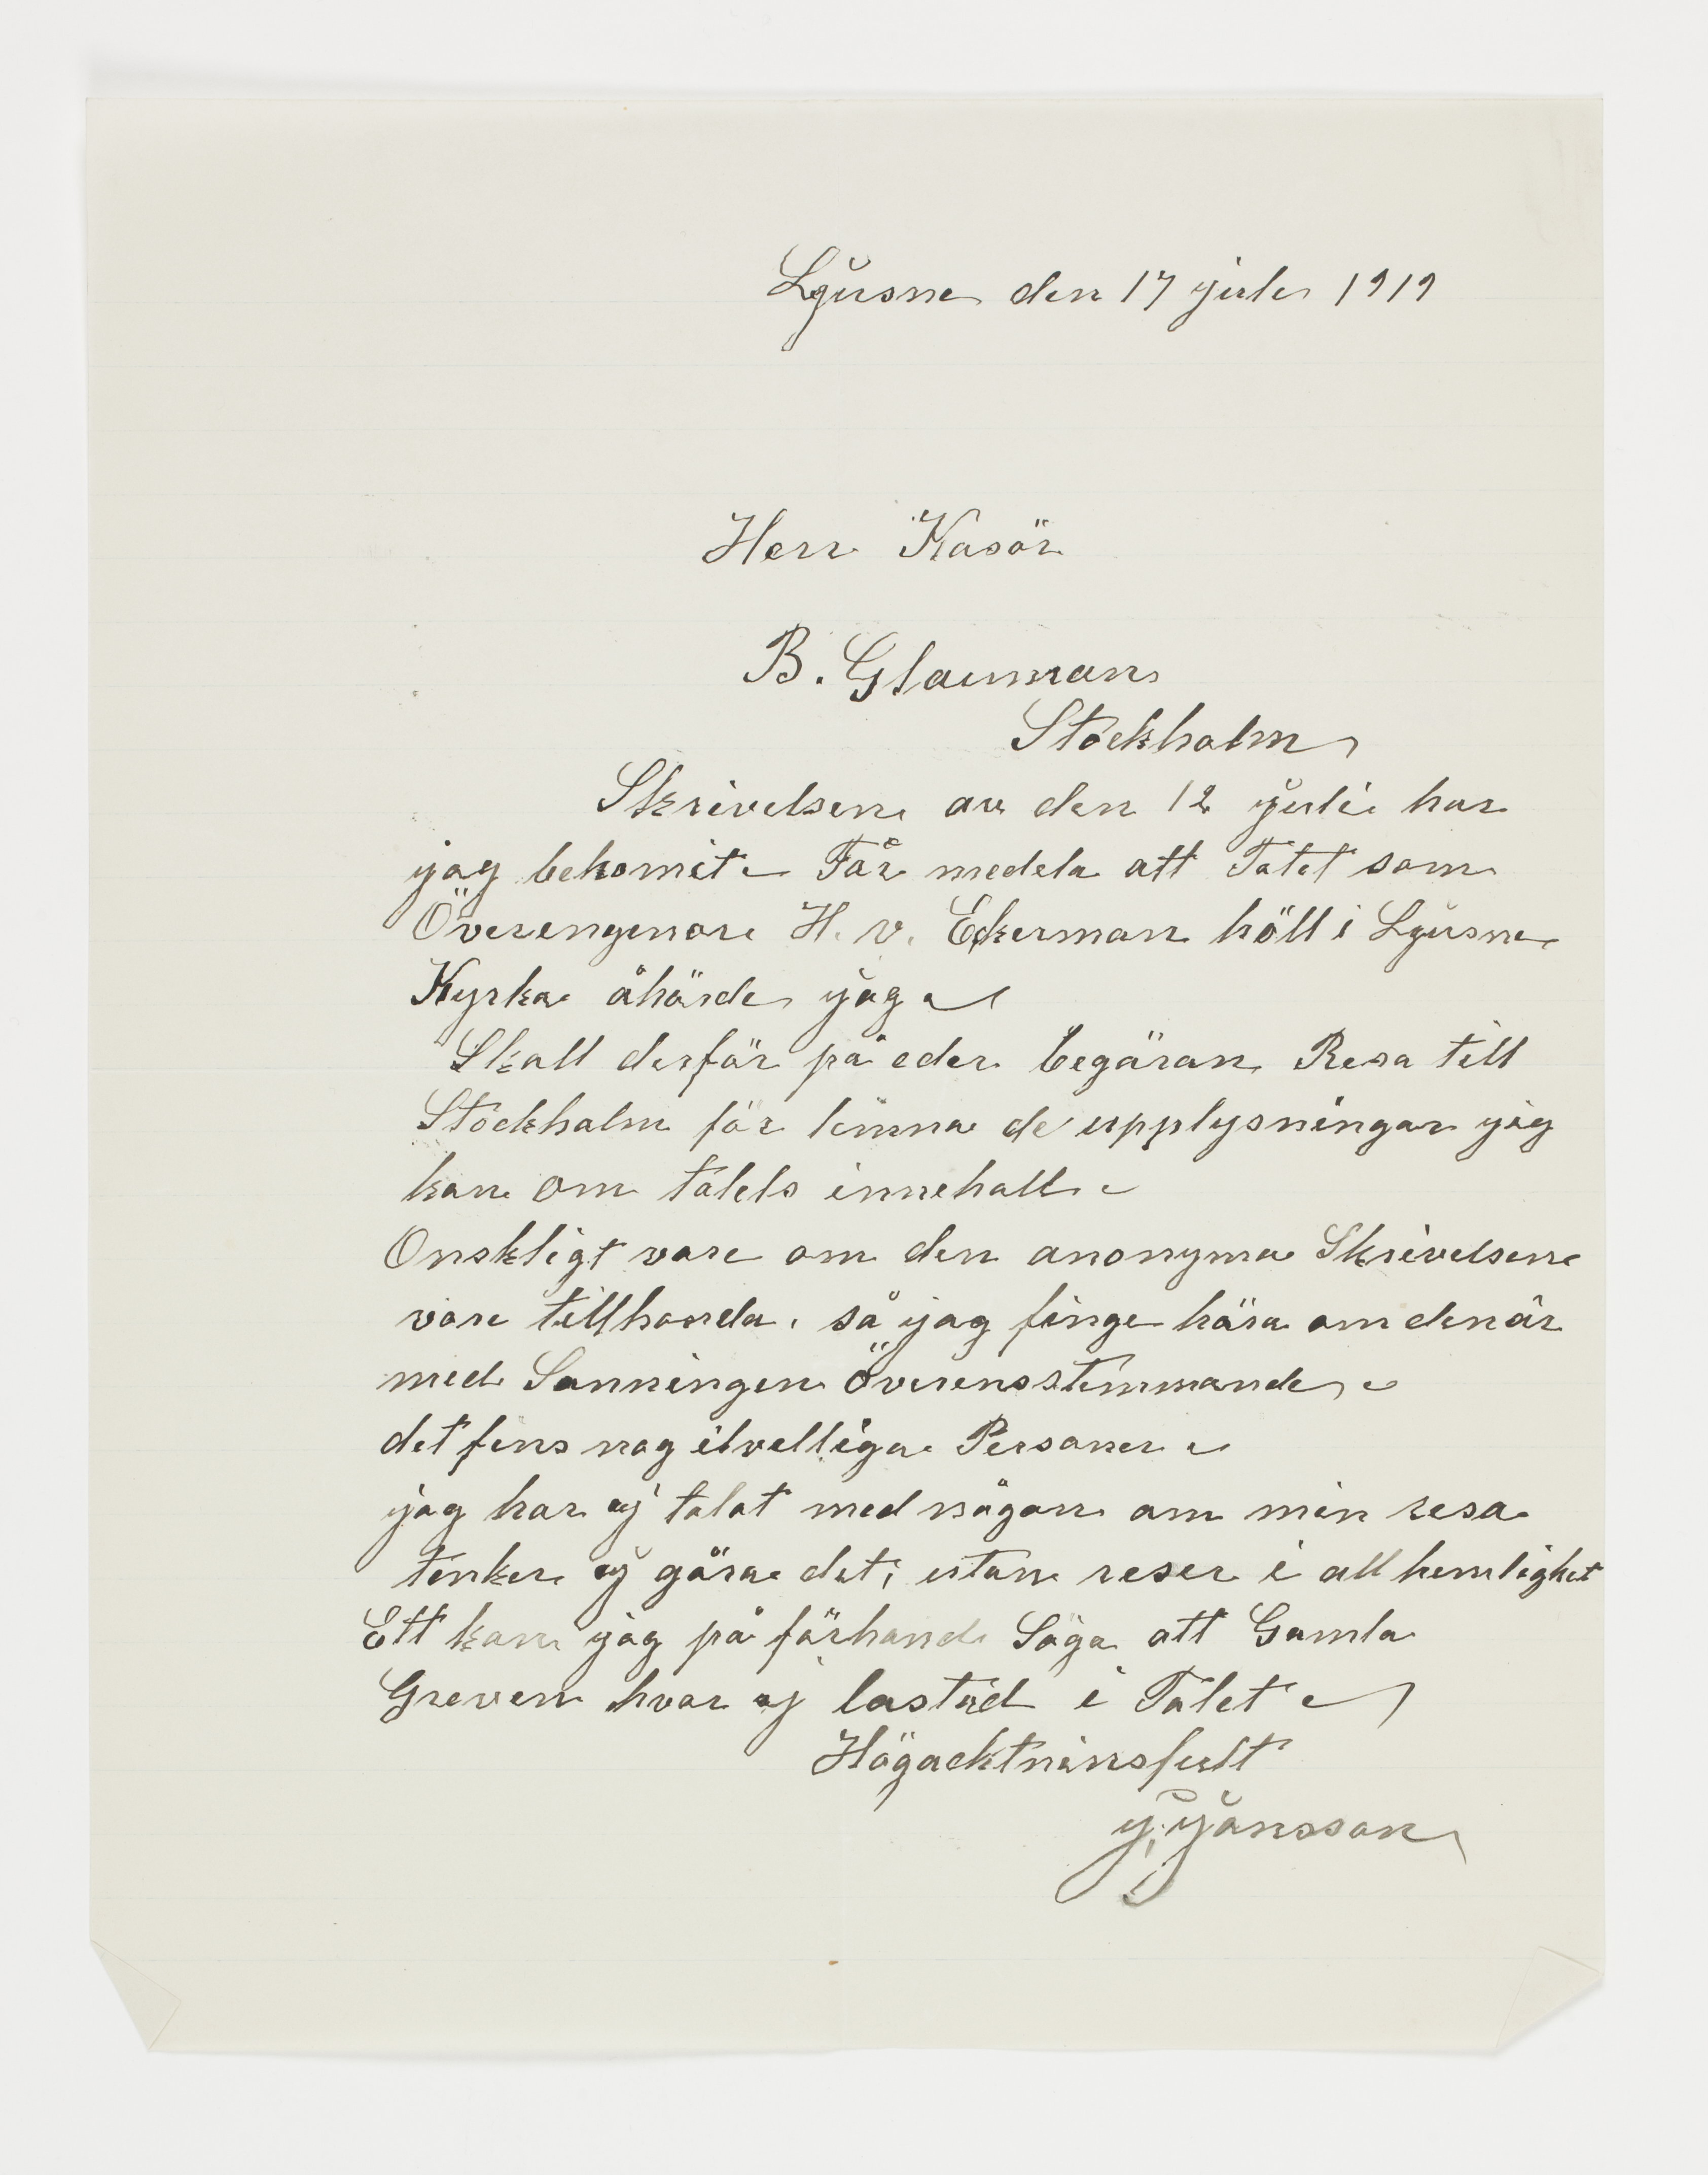 Ljusne den 17 juli 1919
Herr Kasör
B. Glauman
Stockholm
Skrivelsen av den 12 juli har
jag bekomit Får medela att Talet som
Överengenøre H. v. Eckerman höll i Ljusne
Kyrka åhörde jag
Skall derför på eder begäran Resa till
Stockholm för lämna de upplysningar jag
kan om talets innehall
Onskligt vore om den anonyma Skrivelsen
vore tillhanda, så jag finge höra om den är
med Sanningen Överensstemmande
det fins nog ilvelliga Personer
jag har ej talat med någon om min resa
tenker ej göra det, utan reser i all hemlighet
Ett kan jag på förhand Säga att Gamla
Greven hvar ej lastad i Talet
Högacktninsfult
J. Jonsson